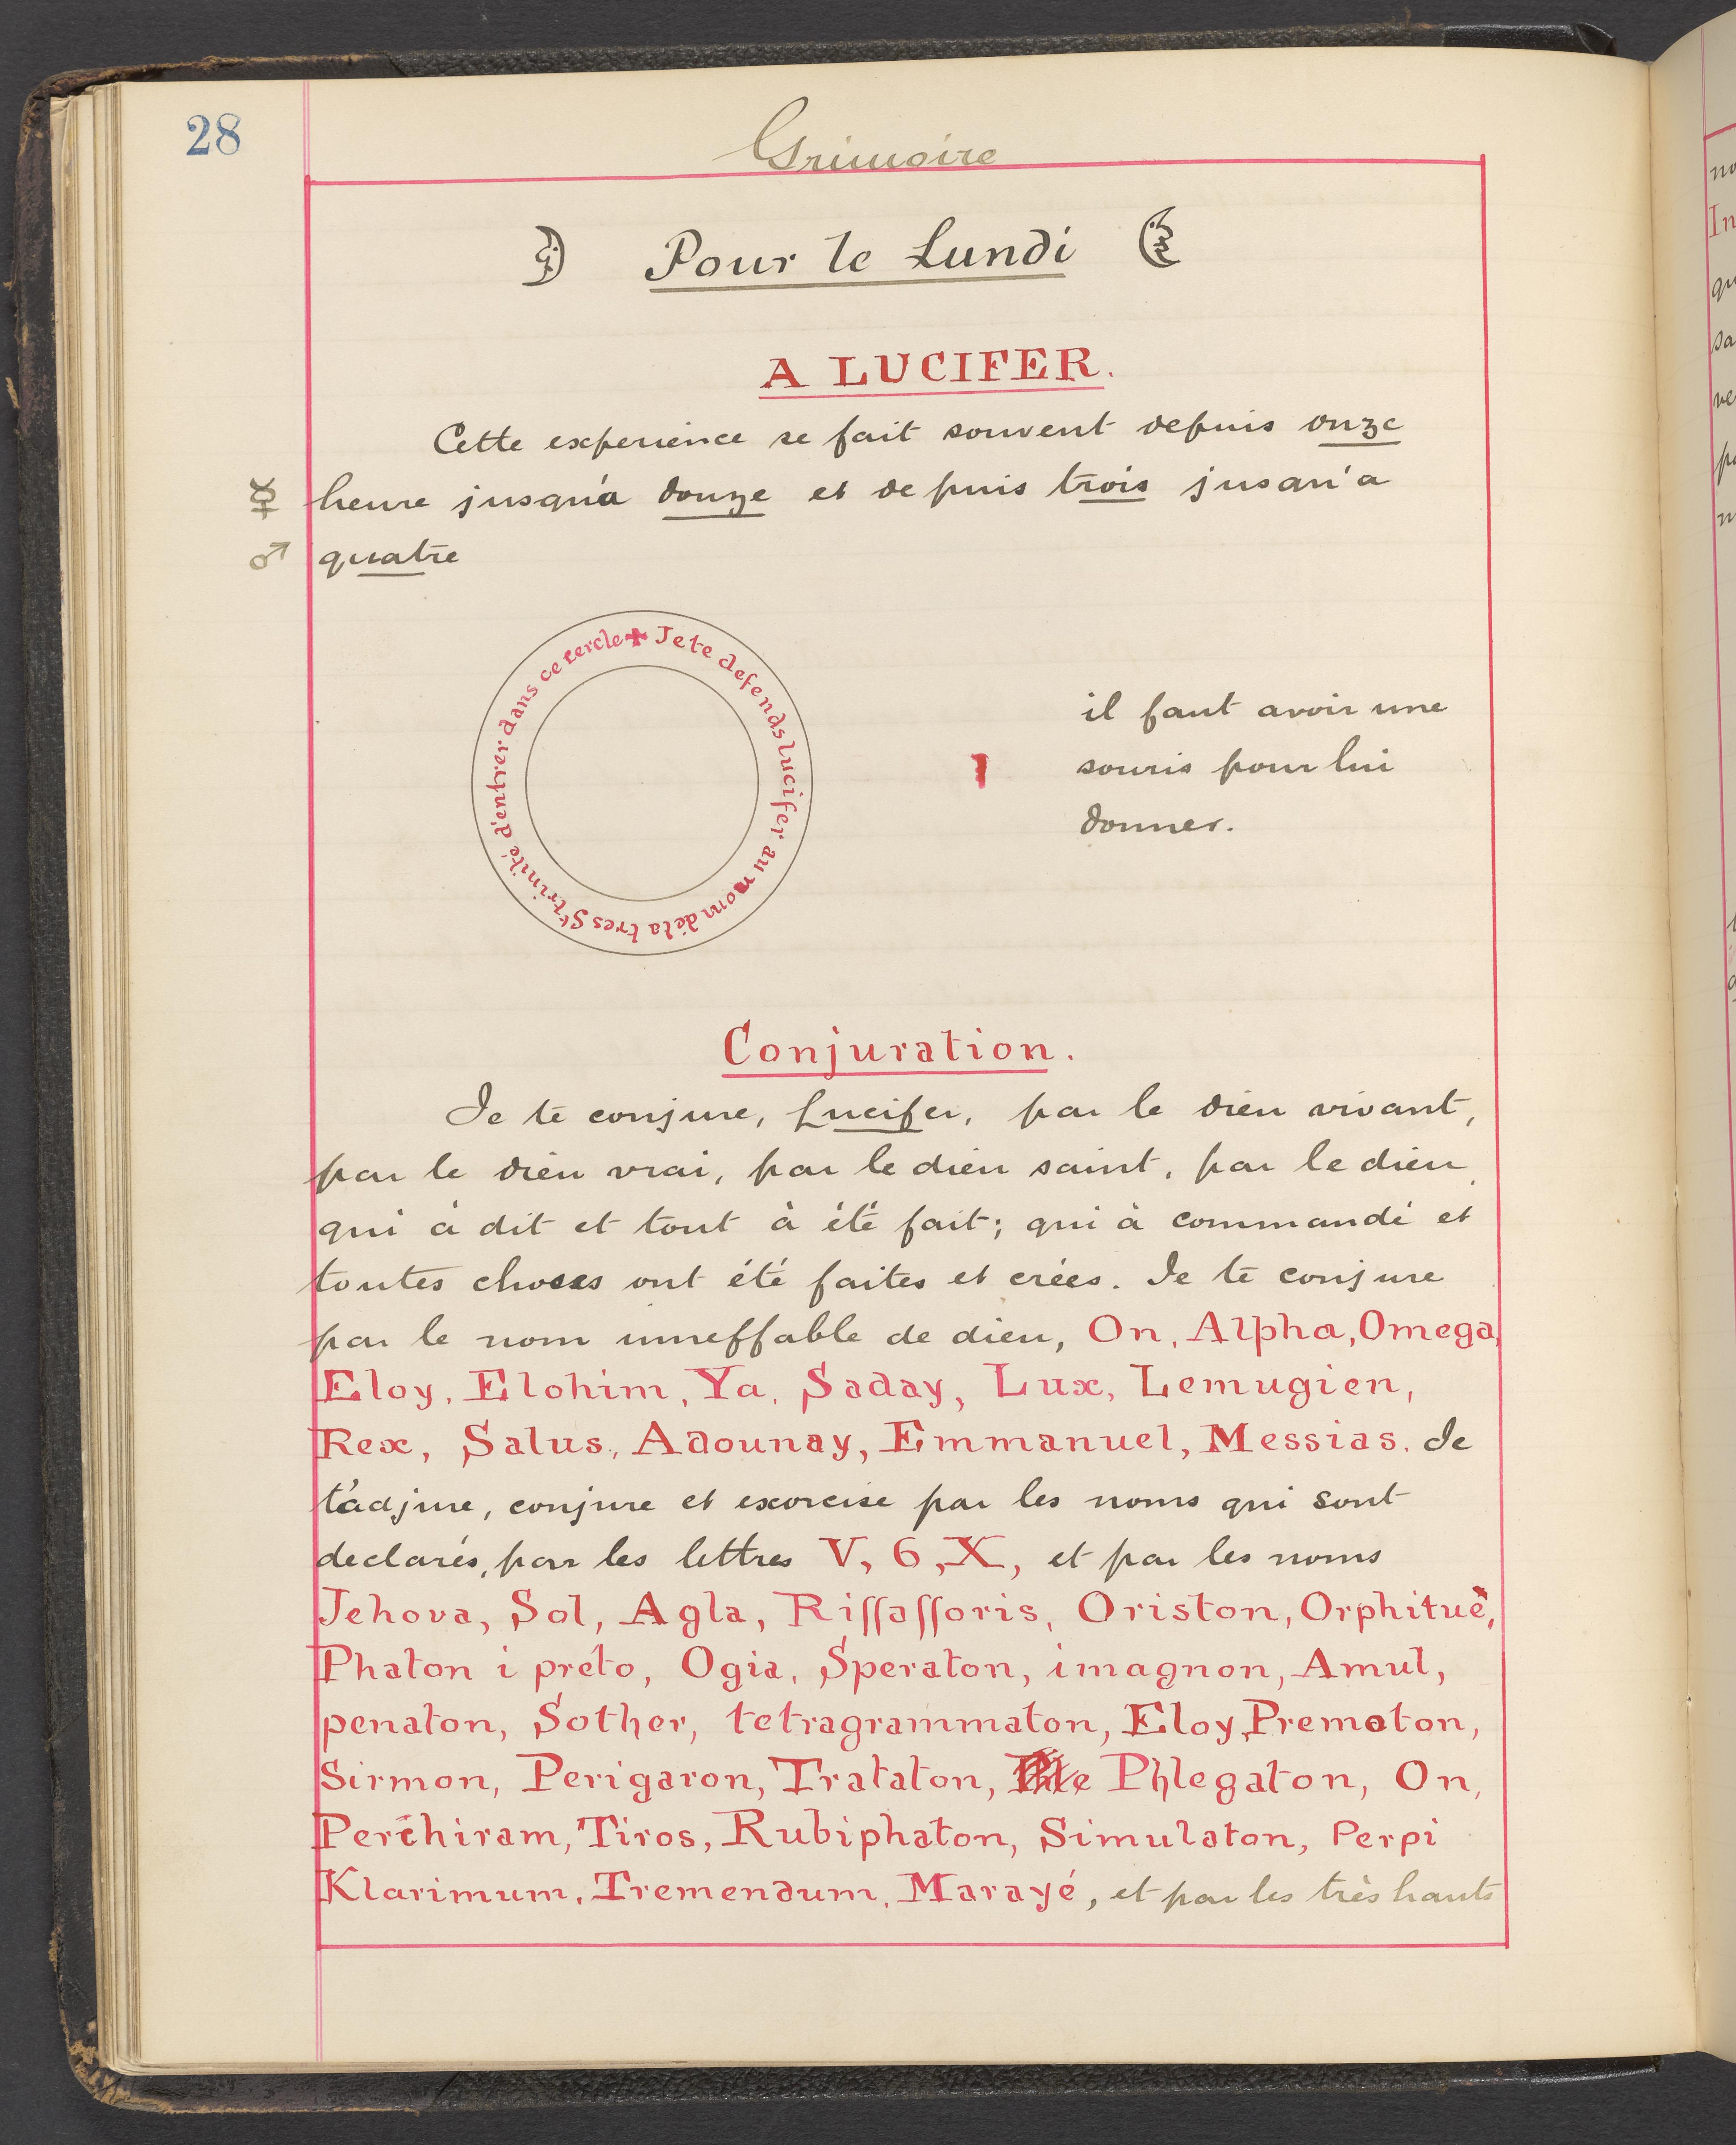 28
Grimoire
Pour le Lundi
A LUCIFER.
Cette experience se fait souvent depuis onze
☿ heure jusqu'a douze et depuis trois jusqu'a
♂ quatre
✠ Je te defends lucifer au nom de la tres Ste trinité d'entrer dans ce cercle
il faut avoir une
souris pour lui
donner.
Conjuration.
Je te conjure, Lucifer, par le dieu vivant,
par le dieu vrai, par le dieu saint, par le dieu,
qui à dit et tout à été fait; qui à commandé et
toutes choses ont été faites et crées. Je te conjure
par le nom inneffable de dieu, On, Alpha, Omega,
Eloy, Elohim, Ya, Saday, Lux, Lemugien,
Rex, Salus, Adounay, Emmanuel, Messias. Je
t'adjure, conjure et exorcise par les noms qui sont
declarés, par les lettres V, 6, X, et par les noms
Jehova, Sol, Agla, Riſſaſſoris, Oriston, Orphituè,
Phaton i preto, Ogia, Speraton, imagnon, Amul,
penaton, Sother, tetragrammaton, Eloy, Premoton,
Sirmon, Perigaron, Irataton, Phlegaton, On,
Perchiram, Tiros, Rubiphaton, Simulaton, Perpi
Klarimum, Tremendum, Marayé, et par les très hauts